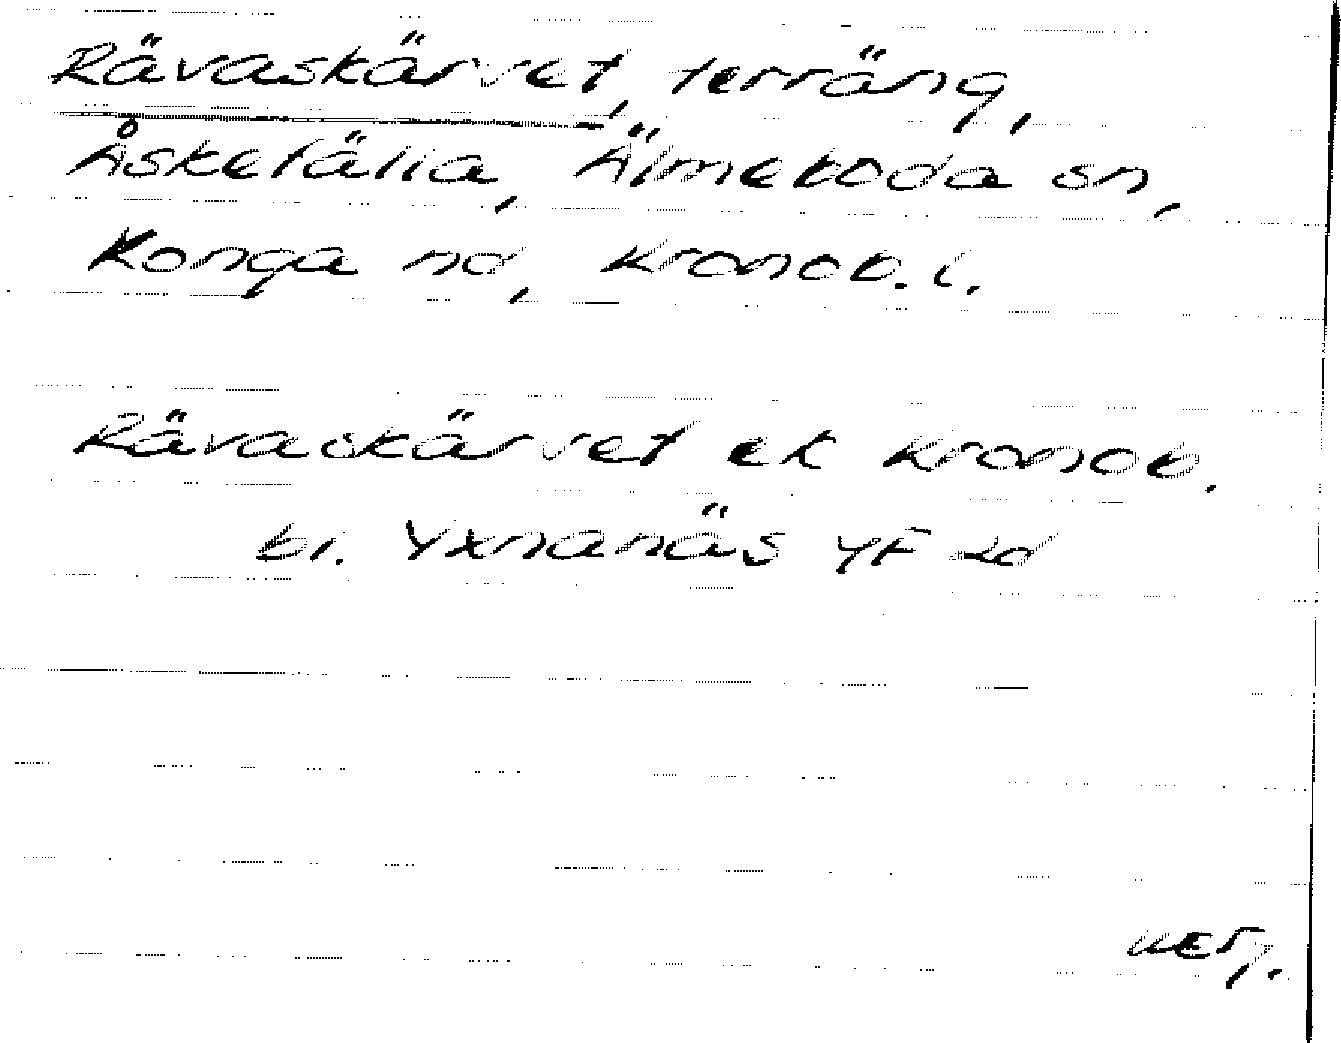 Rävaskärvet, terräng,
Åskefälla, Älmeboda sn,
Konga hd, Kronob. l.
Rävaskärvet ek Kronob.
bl. Yxnanäs 4F 2d